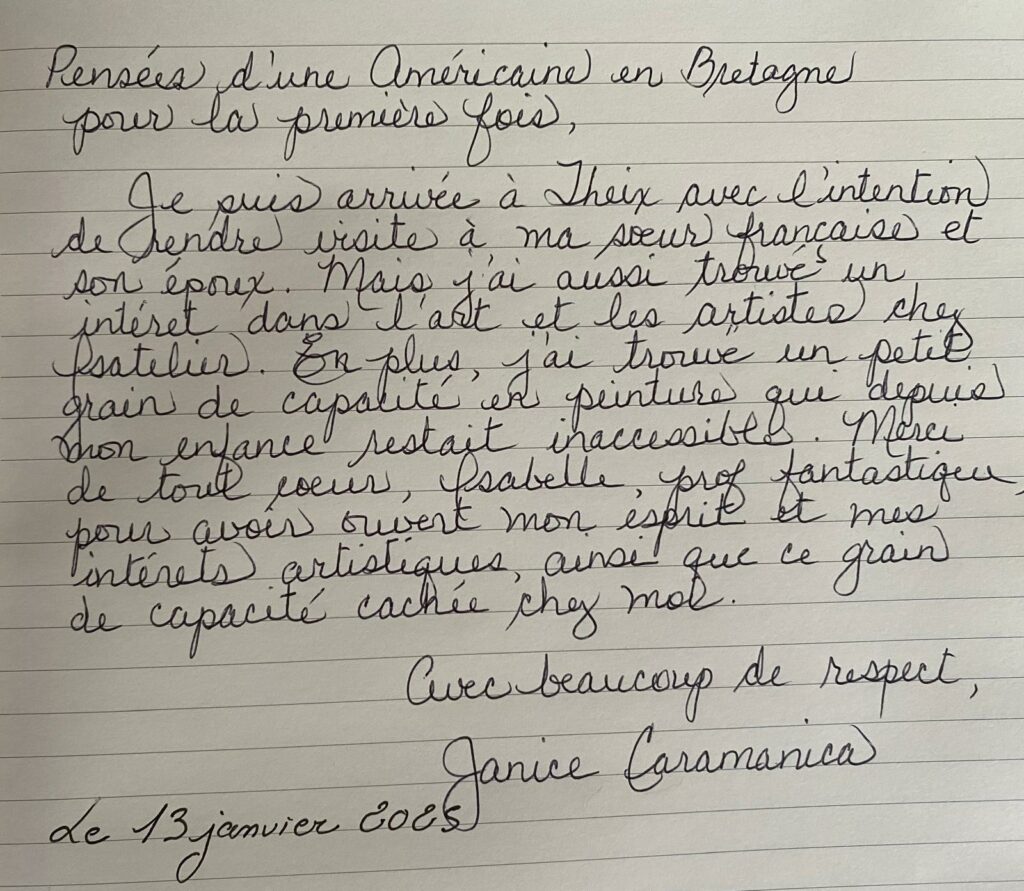 Pensées d'une Américaine en Bretagne
pour la première fois,
Je suis arrivée à Theix avec l'intention
de rendre visite à ma sœur française et
son époux. Mais j'ai aussi trouvé un
intéret dans l'art et les artistes chez
Isatelier. En plus, j'ai trouvé un petit
grain de capacité en peinture qui depuis
mon enfance restait inaccessible. Merci
de tout coeur, Isabelle, prof fantastique,
pour avoir ouvert mon esprit et mes
intérets artistiques, ainsi que ce grain
de capacité cachée chez moi.
Avec beaucoup de respect,
Janice Caramanica
Le 13 janvier 2025